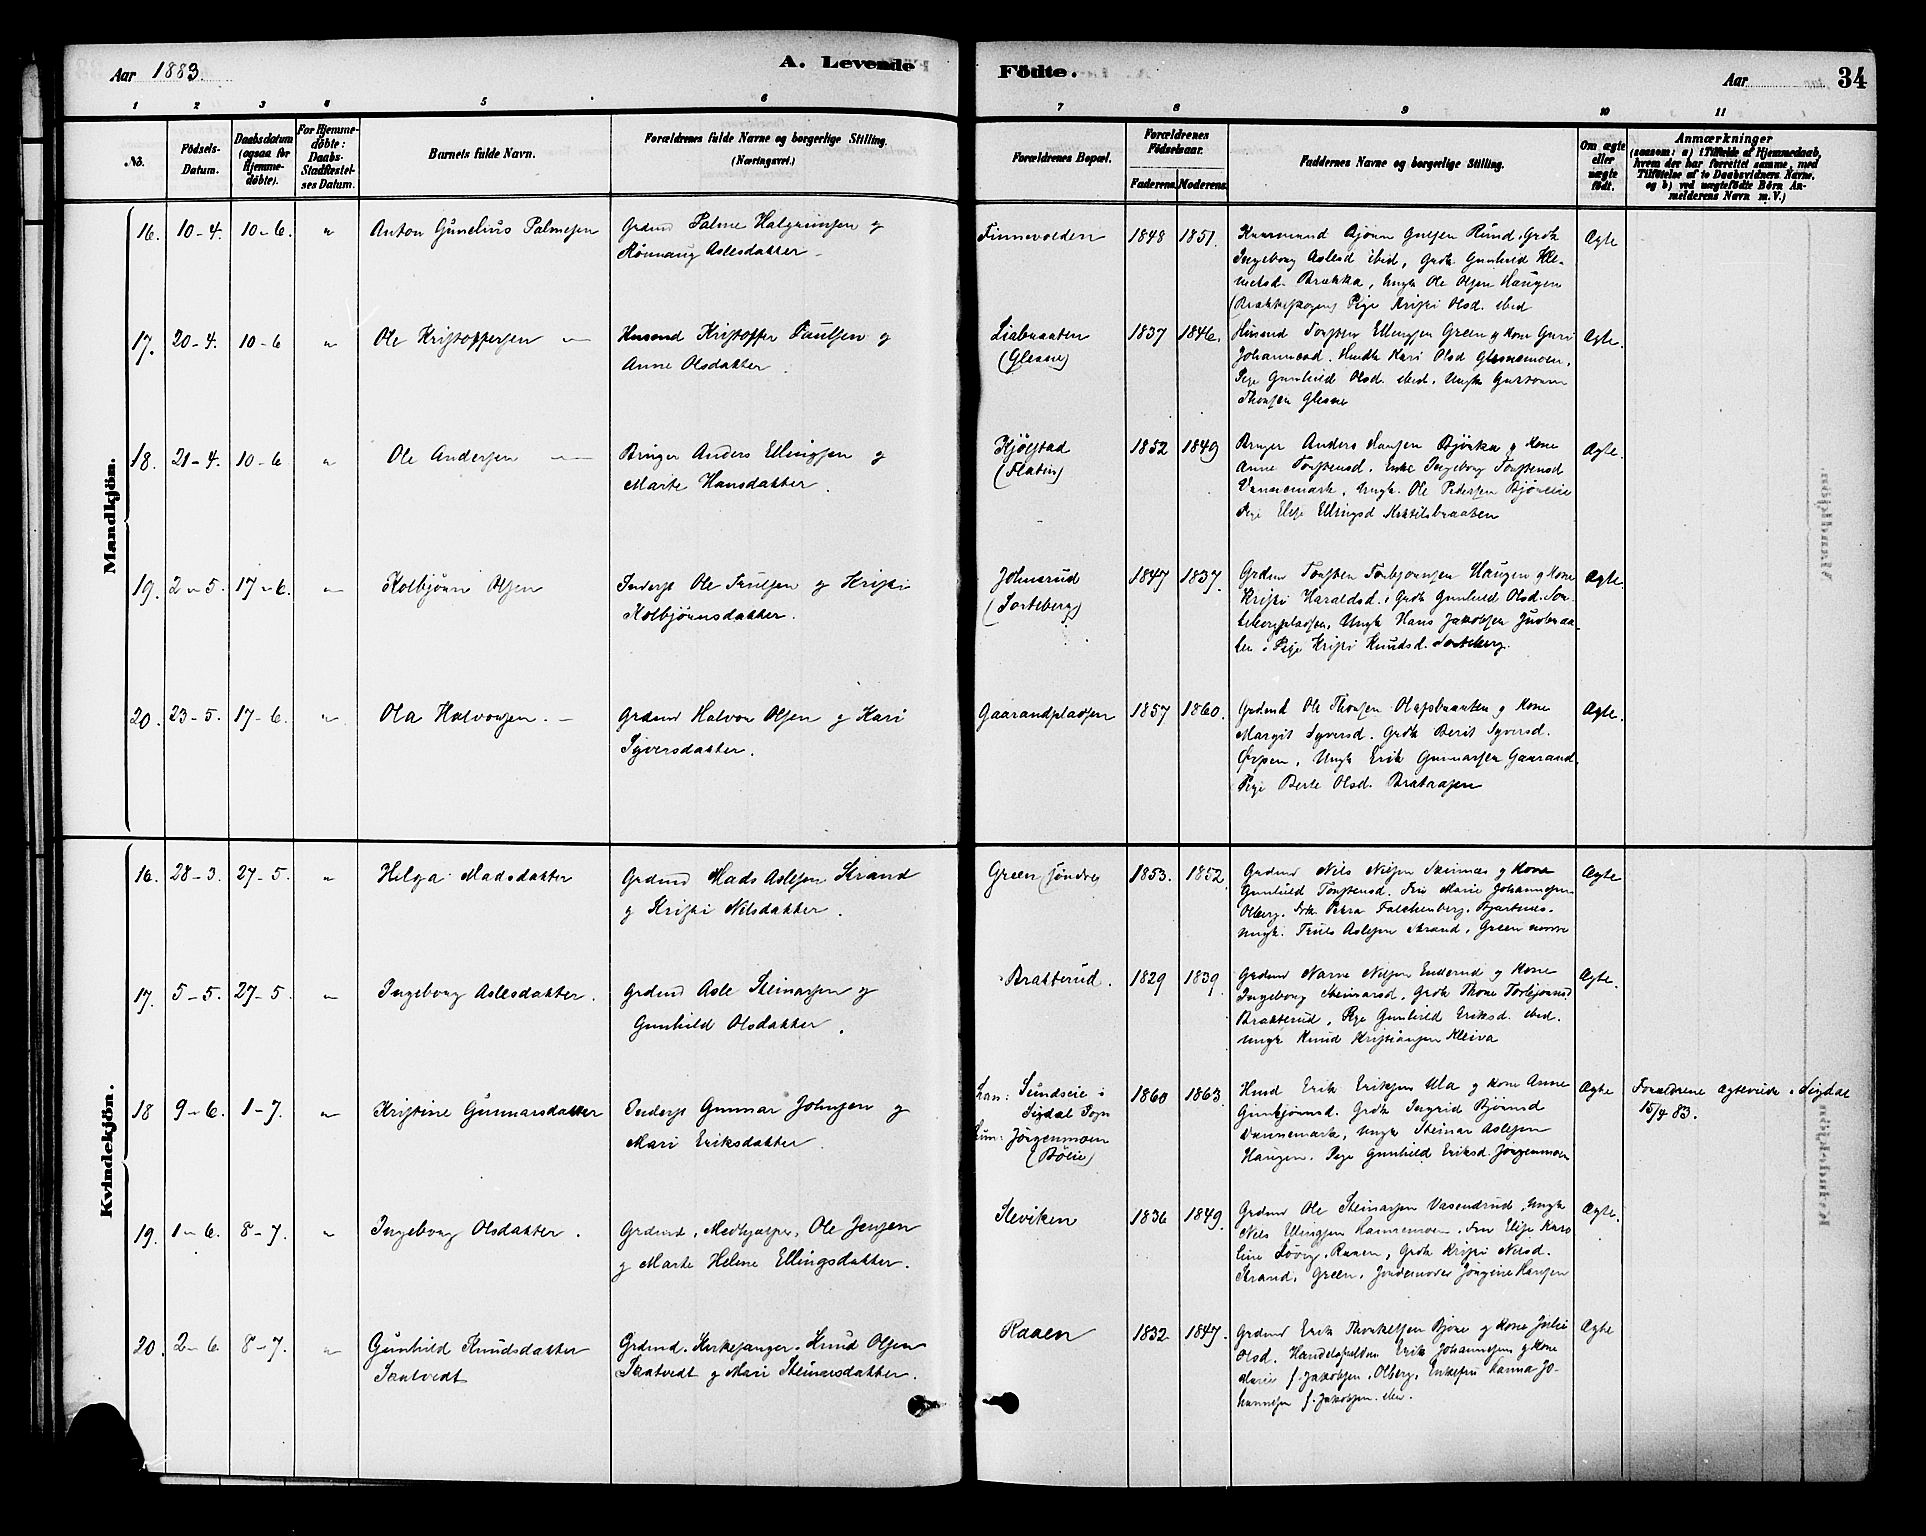 Aar 1883.
A. Levende
Födte.
Aar
34
1 2 3 4 5 6
7 8 9 10 11
No.
Födsels-
Datum.
Daabsdatum
(ogsaa for
Hjemme-
döbte).
For Hjemme-
döbte:
Daabs-
Stadfæstel-
ses Datum.
Barnets fulde Navn.
Forældrenes fulde Navne og borgerlige Stilling.
(Næringsvei.)
Forældrenes Bopæl.
Forældrenes
Födselsaar.
Faderens. Moderens.
Faddernes Navne og borgerlige Stilling.
Om ægte
eller
uægte
født.
Anmærkninger
(saasom: a) i Tilfælde af Hjemmedaab,
hvem der har forrettet samme, med
Tilföielse af to Daabsvidners Navne,
og b) ved uægtefödte Börn An-
melderens Navn m. V.)
Mandkjön.
16. 10-4. 10-6. " Anton Gunelius Palmesen
Grdmd Palme Halgrimsen og
Rönnaug Aslesdatter
Finnevolden 1848 1851.
Bjørn Gulsen Rund. Grdk
Ingeborg Aslesd ibid, Grdk Gunhild Kle-
metsd. Brækka, Ungk Ole Olsen Haugen
(Brækkeskogen) Pige Kristi Olsd. ibid
Ægte
17. 20-4. 10-6 " Ole Kristoffersen
Husmd Kristoffer Paulsen og
Anne Olsdatter.
Liabraaten
(Glesne)
1837 1846.
Husmd Torsten Ellingsen Green og Kone Guri
Johannesd. Kari Olsd Glesnemoen,
Pige Gunhild Olsd. ibid. Ungk
Thorsen Glesne
Ægte.
18. 21-4. 10-6 " Ole Andersen
Bruger Anders Ellingsen og
Marte Hansdatter.
Kjölstad
(Flatin)
1852 1849
Bruger Anders Hansen Björka og Kone
Anne Torstensd. Enke Ingeborg Torstensd
Vannemark, Ungk. Ole Pedersen Björeeie
Pige Else Ellingsd Kittilsbraaten
Ægte.
19. 2-5. 17-6. " Kolbjörn Olsen
Inderst Ole Trulsen og Kristi
Kolbjörnsdatter.
Johnsrud
(Sorteberg)
1847 1837.
Grdmd Torsten Torbjörnsen Haugen og Kone
Kristi Haraldsd. Grdk Gunhild Olsd. Sor-
tebergpladsen, Ungk Hans Jakobsen Juvbraa-
ten, Pige Kristi Knudsd. Sorteberg.
Ægte.
20. 23-5. 17-6. " Ola Halvorsen.
Grdmd Halvor Olsen og Kari
Syversdatter.
Gaarandpladsen 1857 1860.
Grdmd Ole Thorsen Olafsbraaten og Kone
Margit Syversd. Grdk Berit Syversd.
Örpen, Ungk Erik Gunnarsen Gaarand,
Pige Berte Olsd. Brataasen
Ægte.
Kvindekjön.
16. 28-3. 27-5. " Helga Madsdatter
Grdmd Mads Aslesen Strand
og Kristi Nilsdatter.
Green söndre 1853. 1852
Grdmd Nils Nilsen Skinnes og Kone
Gunhild Torstensd. Fru Marie Johannesen
Olberg. Frk Petra Falchenberg, Bjartnes.
Ungk. Truls Aslesen Strand, Green
Ægte
17. 5-5. 27-5. " Ingeborg Aslesdatter.
Grdmd Asle Steinarsen og
Gunhild Olsdatter.
Bratterud. 1829 1839
Grdmd Narve Nilsen Enderud og Kone
Ingeborg Steinarsd, Grdk Thone Torbjörnsd
Bratterud, Pige Gunhild Eriksd. ibid.
Ungk Knud Kristiansen Kleiva
Ægte.
18 9-6. 1-7. " Kristine Gunnarsdatter
Inderst Gunnar Johnsen og
Mari Eriksdatter.
Han: Sundseie i
Sigdal Sogn
Hun: Jörgenmoen
(Böeie)
1860 1863.
Husmd Erik Eriksen Ula og Kone Anne
Gunbjörnsd. Grdk Ingrid Björnsd
Vannemark, Ungk Steinar Aslesen
Haugen. Pige Gunhild Eriksd. Jörgenmoen
Ægte
Forældrene ægteviede i Sigdal
15/4 83.
19. 1-6. 8-7. " Ingeborg Olsdatter.
Grdmd, Medhjælper, Ole Jensen
og Marte Helene Ellingsdatter.
Sleviken 1836 1849.
Grdmd Ole Steinarsen Vasendrud, Ungk
Nils Ellingsen Hannemoen. Fru Elise Karo
line Lövig, Raaen, Grdk Kristi Nilsd.
Strand, Green, Jordemoder Jörgine Hansen
Ægte.
20. 2-6. 8-7. " Gunhild Knudsdatter
Skatvedt
Grdmd. Kirkesanger. Knud Olsen
Skatvedt og Mari Steinarsdatter.
Raaen 1832 1847.
Grdmd Erik Thorkelsen Björe og Kone Julie
Olsd. Handelsmand Erik Johannesen og Kone
Marie f. Jakobsen, Olberg, Enkefru Hanna Jo-
hannesen f. Jakobsen. ibid.
Ægte